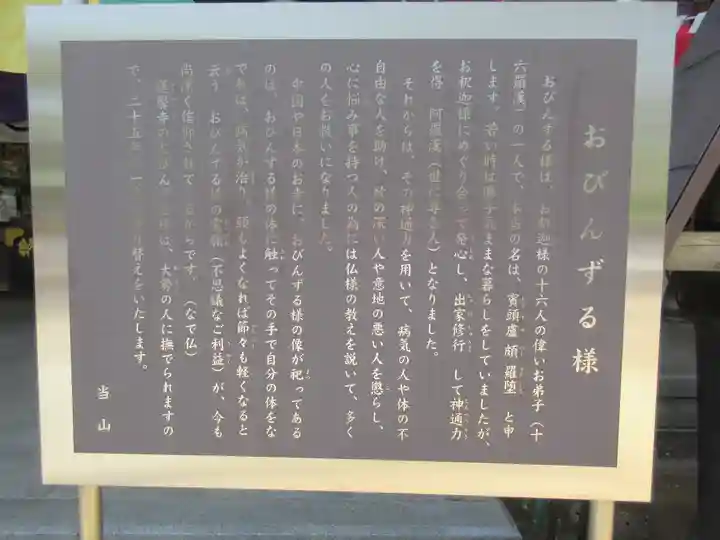 おびんずる様
おびんずる様は、お釈迦様の十六人の偉いお弟子（十
六羅漢）の一人で、本当の名は、賓頭盧頗羅堕 と申
します。若い時は勝手気ままな暮らしをしていましたが、
お釈迦様にめぐり会って発心し、出家修行 して神通力
を得、阿羅漢（世に尊き人）となりました。
それからは、その神通力を用いて、病気の人や体の不
自由な人を助け、欲の深い人や意地の悪い人を懲らし、
心に悩み事を持つ人の為には仏様の教えを説いて、多く
の人をお救いになりました。
中国や日本のお寺に、おびんずる様の像が祀ってある
のは、おびんずる様の体に触ってその手で自分の体をな
であば、病気が治り、頭もよくなれば節々も軽くなると
云う おびんずる様の霊験（不思議なご利益）が、今も
尚深く信仰されているからです。（なで仏）
寺のおびんずる様は、大勢の人に撫でられますの
で、二十五年に一 替えをいたします。
当山